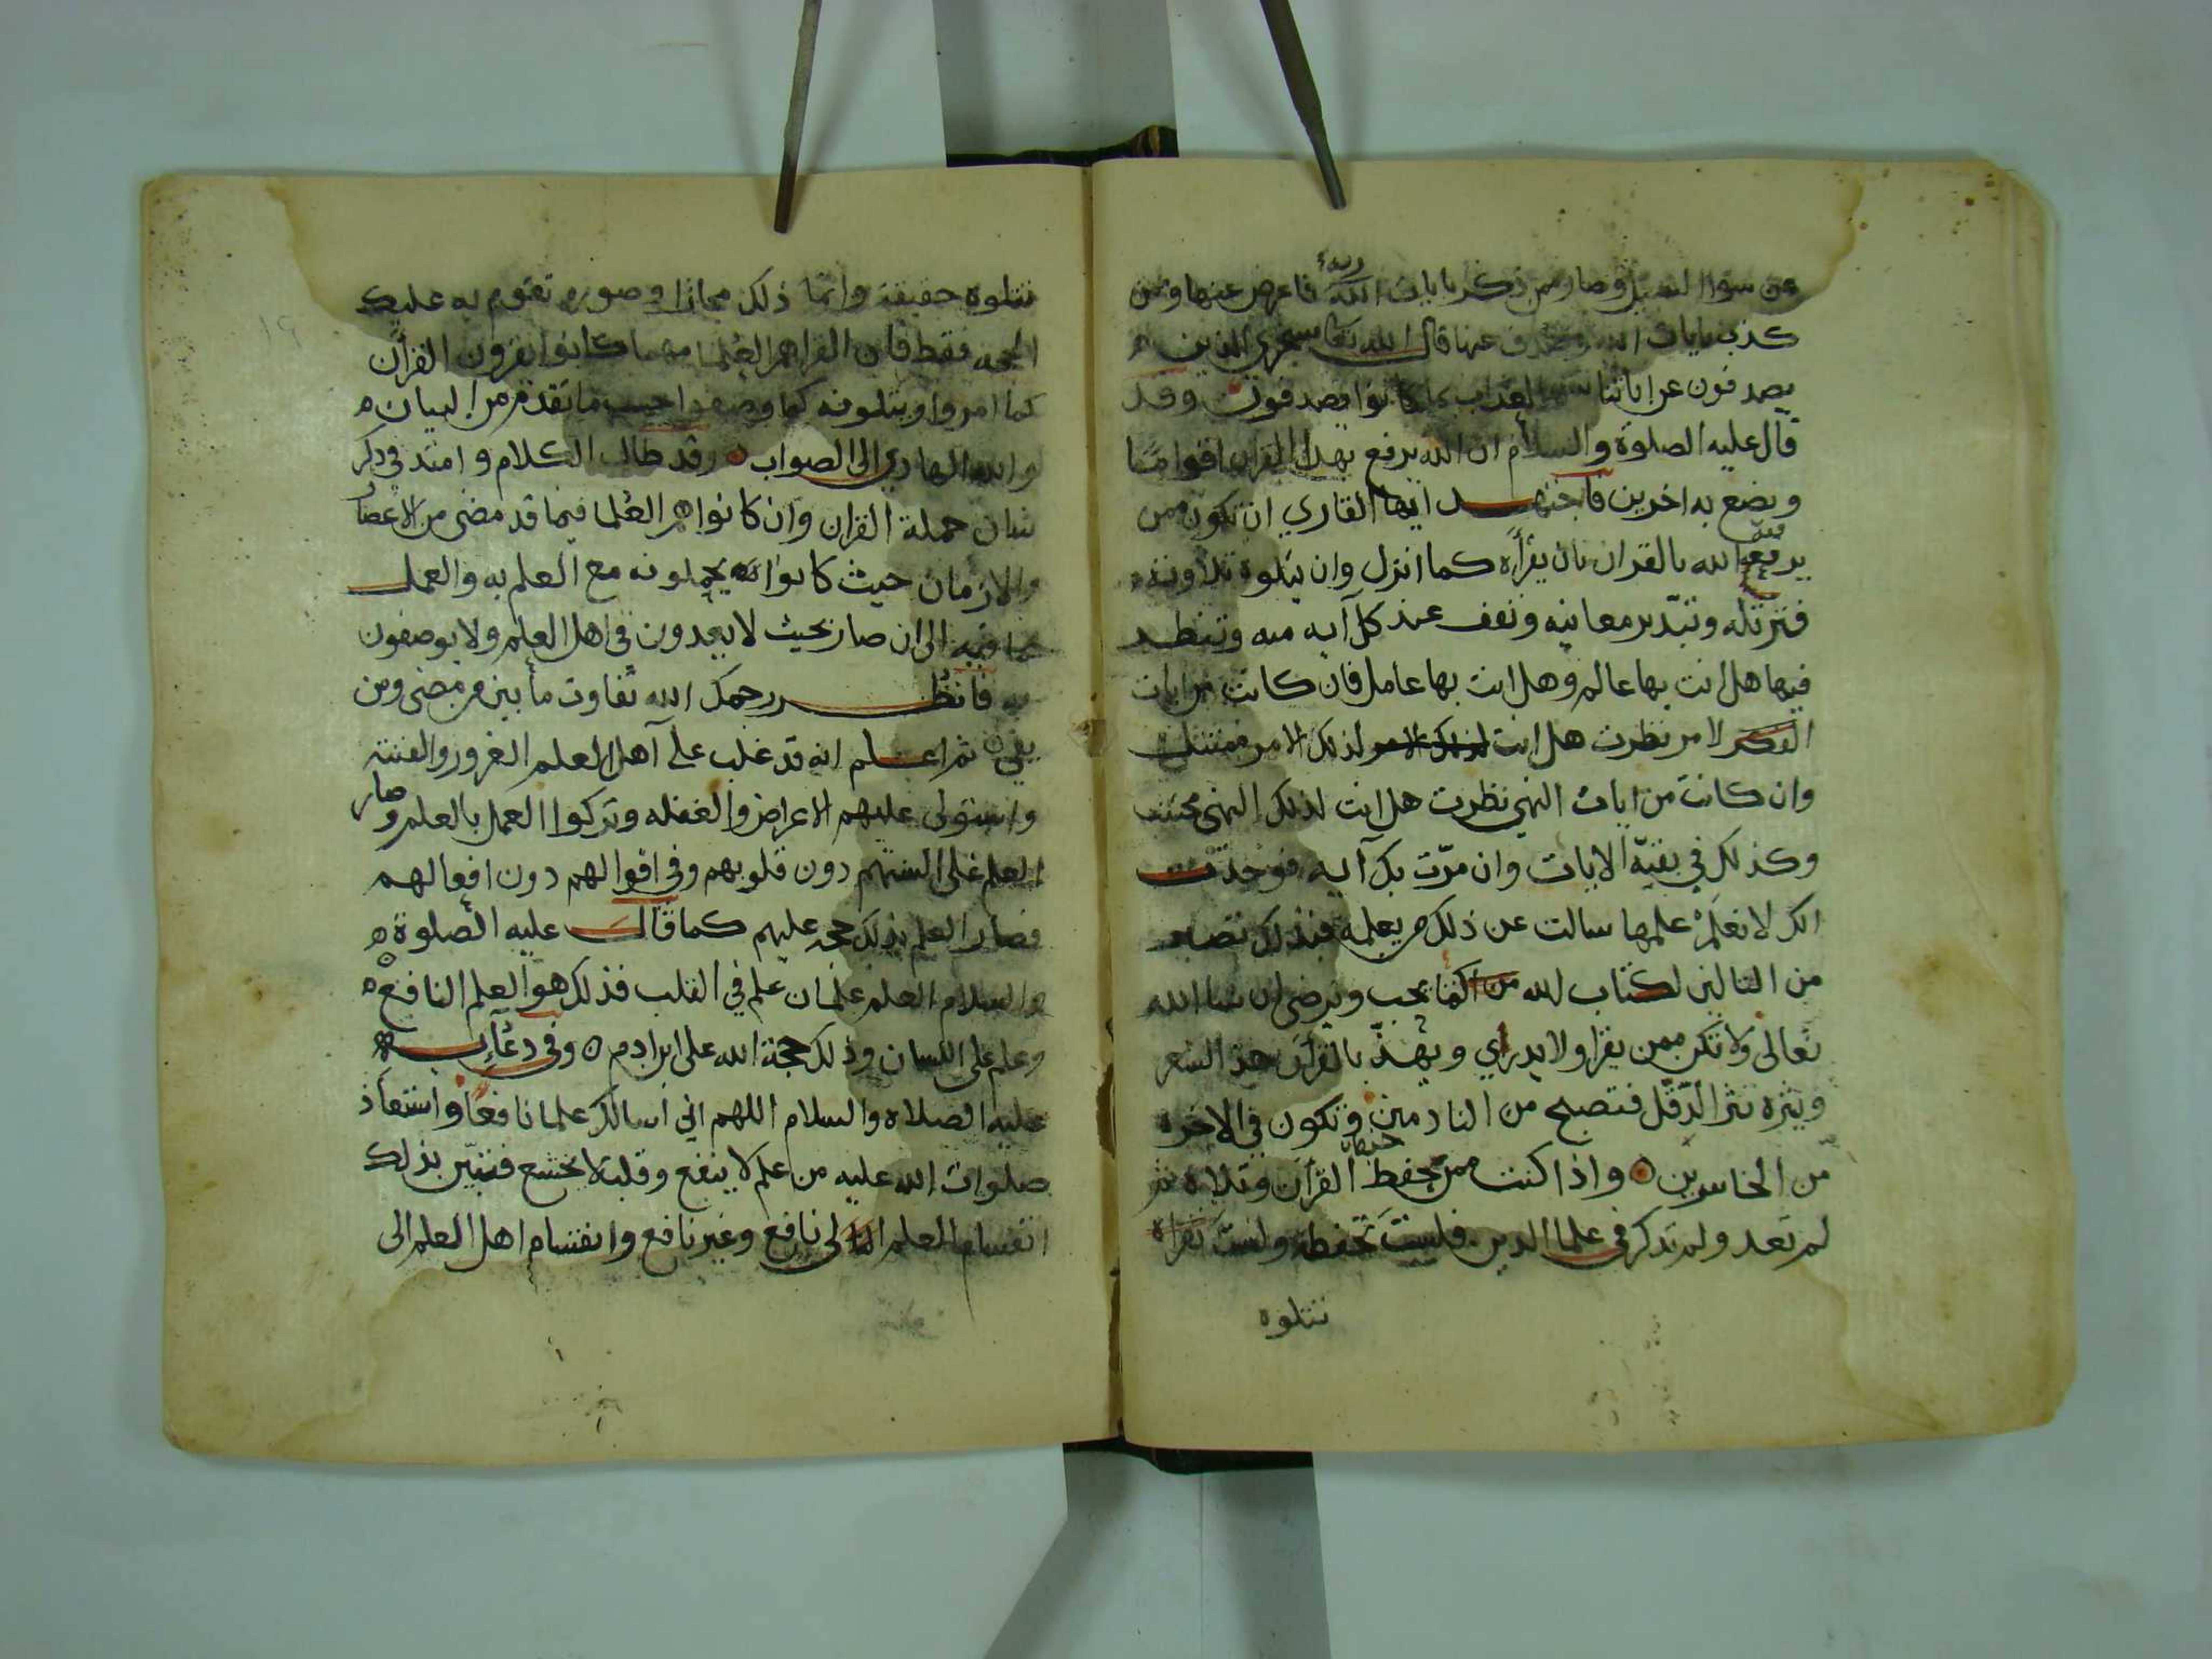 عن سوا السبيل وصار ممن ذكر بايات الله ربه فاعرض عنها وممن
كذب بايات الله وصدف عنها قال الله تعا سنجزي الذين
يصدفون عن اياتنا سو العذاب بما كانوا يصدفون وقد
قال عليه الصلوة والسلام ان الله يرفع بهذا القران اقواما
ويضع به اخرين فاجتهد ايها القاري ان تكون ممن
يرفعه الله بالقران بان يقرأه كما انزل وان يتلوه تلاوته
فترتله وتتدبر معانيه وتقف عند كل آيه منه وتنظر
فيها هل انت بها عالم وهل انت بها عامل فان كانت من ايات
الامر نظرت هل انت لذلك الامر ممتثل
وان كانت من ايات النهي نظرت هل انت لذلك النهي مجتنب
وكذلك في بقيّة الايات وان مرّت بك آيه فوجدت
انك لا تعلم علمها سالت عن ذلك من يعلمه فبذلك تصير
من التالين لكتاب الله كما يحب ويرضى ان شا الله
تعالى ولا تكن ممن يقرا ولا يدري ويهذّ بالقرآن هذ الشعر
وينثره نثر الدّقل فتصبح من النادمين وتكون في الاخره
من الخاسرين ه واذا كنت ممن يحفظ القرآن وتلاه ثم
لم تعد ولم تذكر في علما الدين فلست تحفظه ولست تقراه
تتلوه
تتلوه حقيقة وانما ذلك مجازا وصوره تقوم به عليك
الحجه فقط فان القرا هم العلما مهما كانوا يقرون القرآن
كما امروا ويتلونه كما وصفوا حسب ما تقدم من البيان ه
والله الهادي الى الصواب ه وقد طال الكلام وامتد في ذكر
شان حملة القران وان كانوا هم العلما فيما قد مضى من الاعصار
والازمان حيث كانوا يحملونه مع العلم به والعمل
بما فيه الى ان صار بحيث لا يعدون في اهل العلم ولا يوصفون
به فانظر رحمك الله تفاوت ما بين من مضى ومن
بقي ه ثم اعلم انه قد غلب على آهل العلم الغرور والفتنة
واستولى عليهم الاعراض والغفله وتركوا العمل بالعلم وصار
العلم على السنتهم دون قلوبهم وفي اقوالهم دون افعالهم
فصار العلم بذلك حجه عليهم كما قال عليه الصلوة ه
والسلام العلم علمان علم في القلب فذلك هو العلم النافع ه
وعلم على اللسان وذلك حجة الله على ابن ادم ه وفي دعآئه
عليه الصلاه والسلام اللهم اني اسالك علما نافعا واستعاذ
صلوات الله عليه من علم لا ينفع وقلب لا يخشع فتبيّن بذلك
انقسام العلم الى نافع وغير نافع وانقسام اهل العلم الى